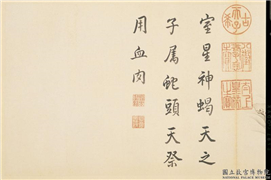 室星神蝎天之
子属蛇頭天祭
用血肉
古希天子
國立故宮博物院
NATIONAL PALACE MUSEUM